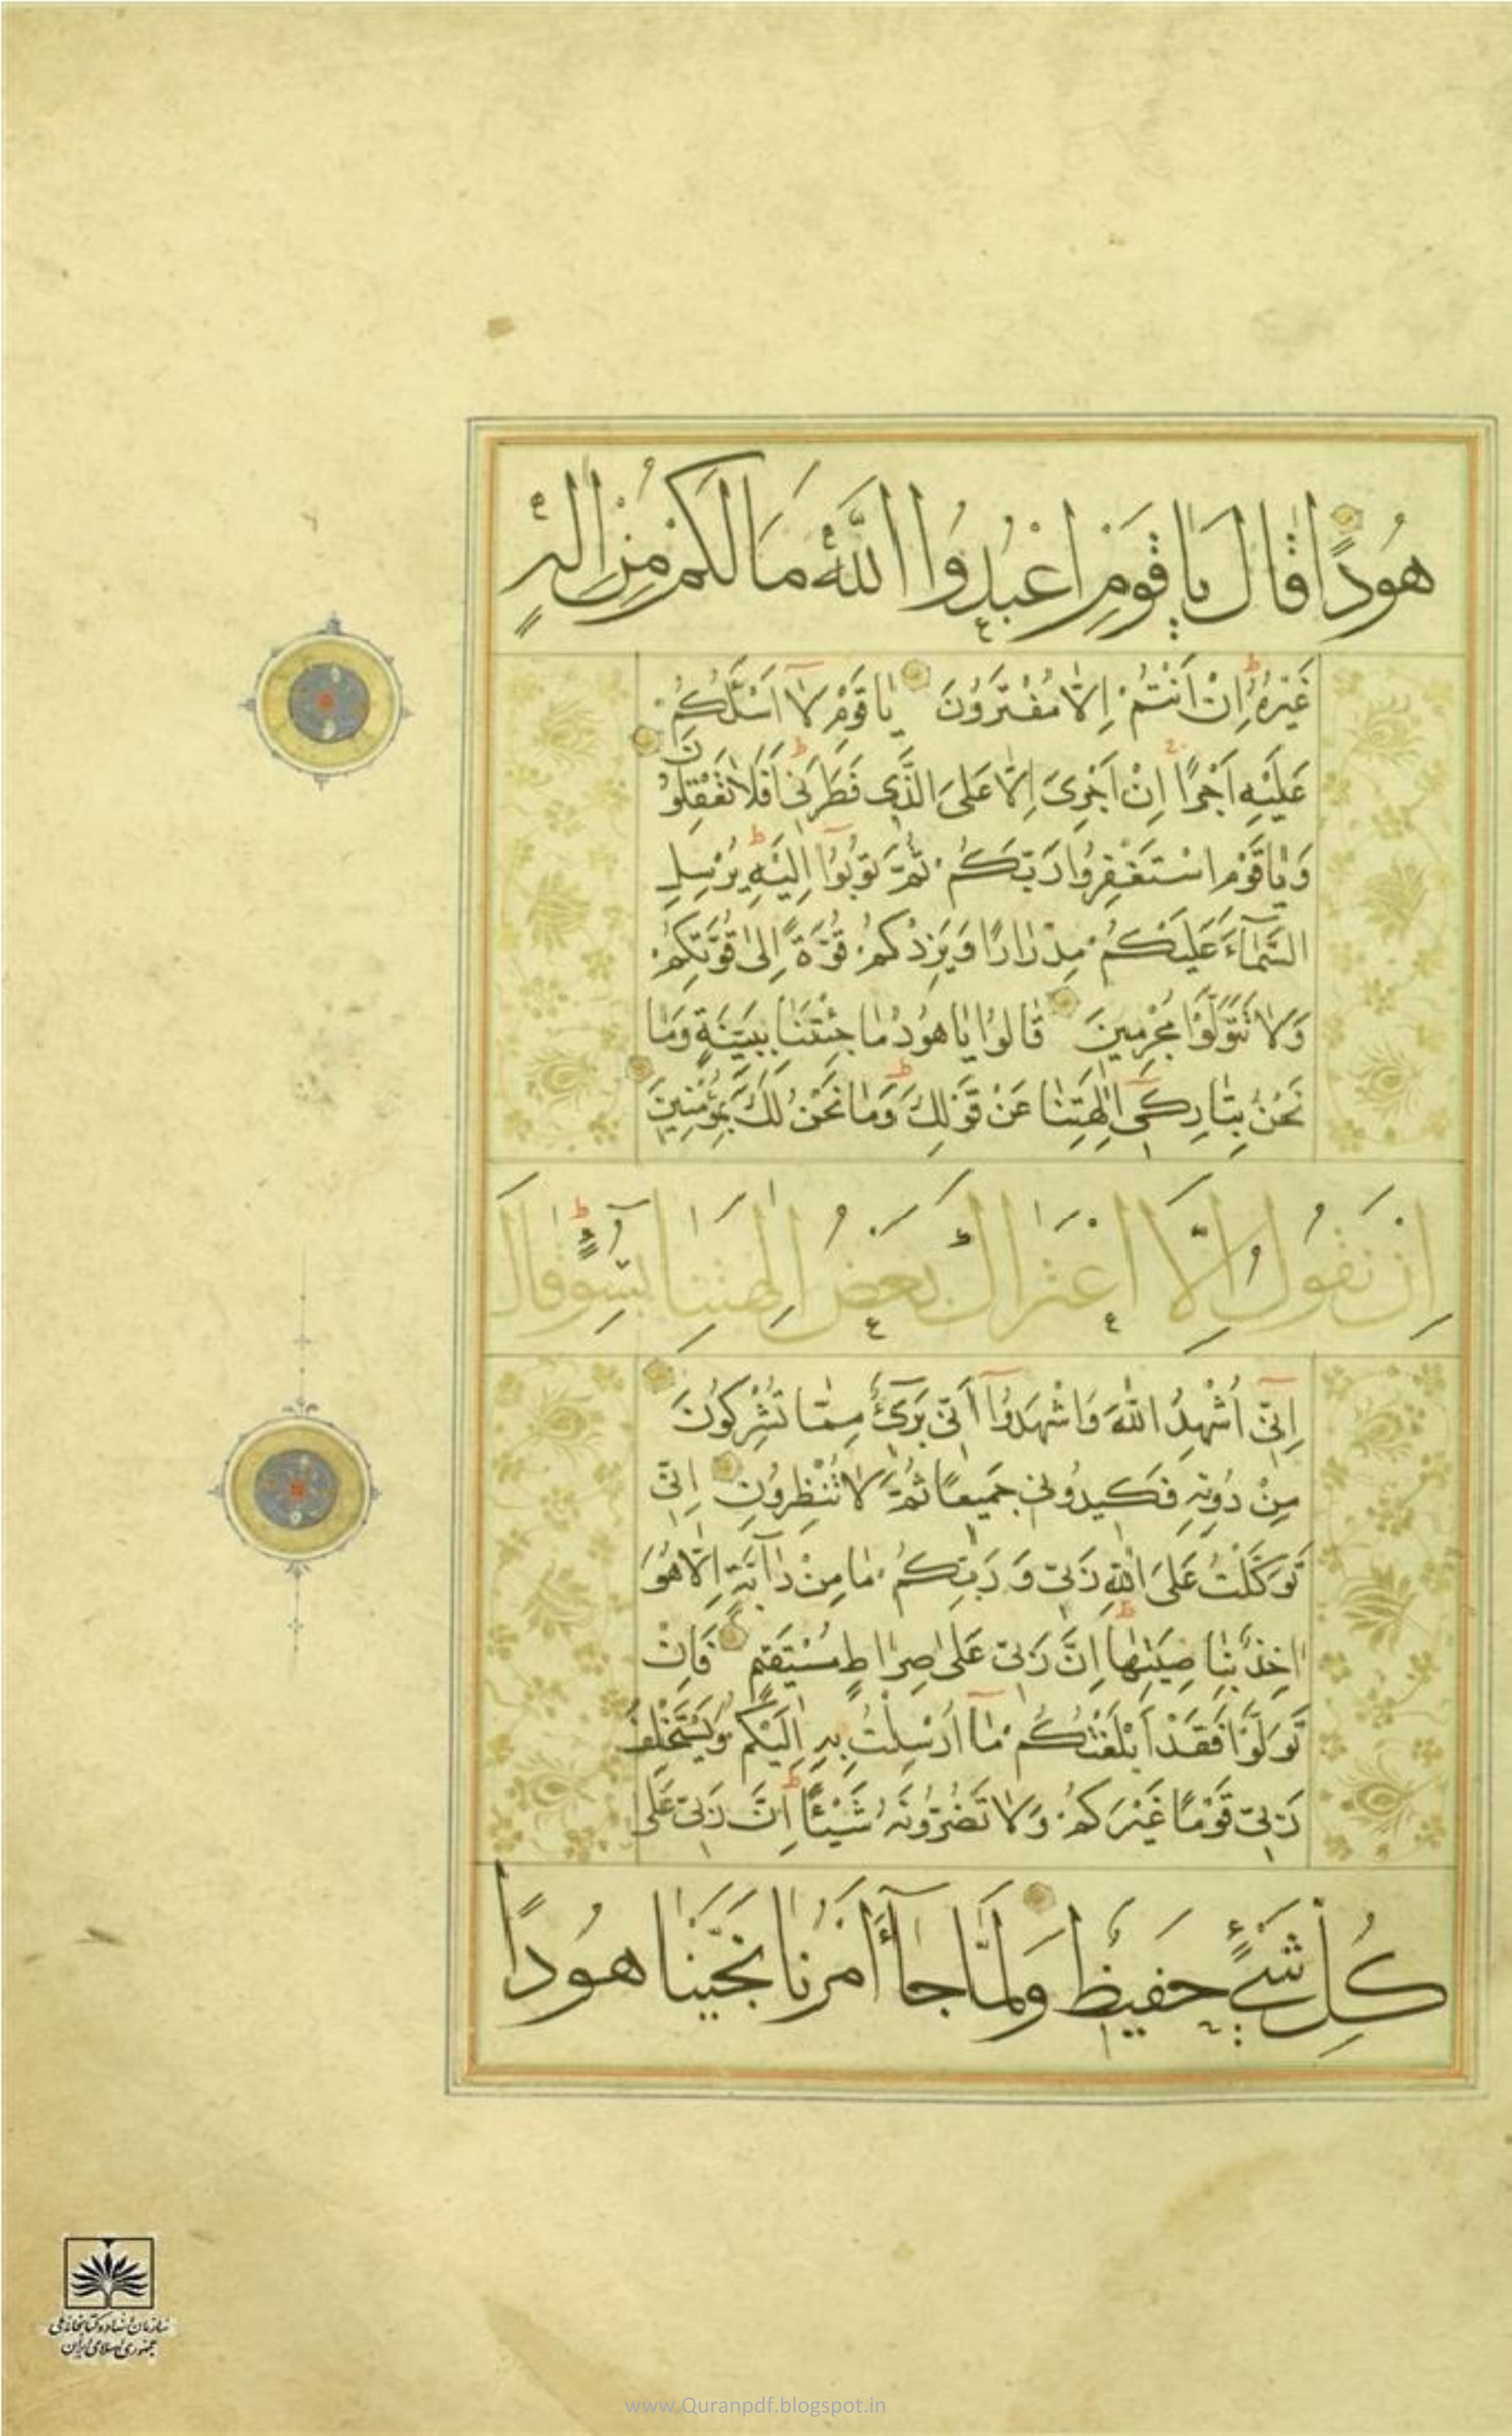 هُودًا قَالَ يَا قَوْمِ اعْبُدُوا اللَّهَ مَا لَكُمْ مِنْ إِلَهٍ
غَيْرُهُ إِنْ أَنْتُمْ إِلَّا مُفْتَرُونَ يَا قَوْمِ لَا أَسْئَلُكُمْ
عَلَيْهِ أَجْرًا إِنْ أَجْرِيَ إِلَّا عَلَى الَّذِي فَطَرَنِي أَفَلَا تَعْقِلُونَ
وَيَا قَوْمِ اسْتَغْفِرُوا رَبَّكُمْ ثُمَّ تُوبُوا إِلَيْهِ يُرْسِلِ
السَّمَاءَ عَلَيْكُمْ مِدْرَارًا وَيَزِدْكُمْ قُوَّةً إِلَى قُوَّتِكُمْ
وَلَا تَتَوَلَّوْا مُجْرِمِينَ قَالُوا يَا هُودُ مَا جِئْتَنَا بِبَيِّنَةٍ وَمَا
نَحْنُ بِتَارِكِي آلِهَتِنَا عَنْ قَوْلِكَ وَمَا نَحْنُ لَكَ بِمُؤْمِنِينَ
إِنْ نَقُولُ إِلَّا اعْتَرَاكَ بَعْضُ آلِهَتِنَا بِسُوءٍ قَالَ
إِنِّي أُشْهِدُ اللَّهَ وَاشْهَدُوا أَنِّي بَرِيءٌ مِمَّا تُشْرِكُونَ
مِنْ دُونِهِ فَكِيدُونِي جَمِيعًا ثُمَّ لَا تُنْظِرُونِ إِنِّي
تَوَكَّلْتُ عَلَى اللَّهِ رَبِّي وَرَبِّكُمْ مَا مِنْ دَابَّةٍ إِلَّا هُوَ
آخِذٌ بِنَاصِيَتِهَا إِنَّ رَبِّي عَلَى صِرَاطٍ مُسْتَقِيمٍ فَإِنْ
تَوَلَّوْا فَقَدْ أَبْلَغْتُكُمْ مَا أُرْسِلْتُ بِهِ إِلَيْكُمْ وَيَسْتَخْلِفُ
رَبِّي قَوْمًا غَيْرَكُمْ وَلَا تَضُرُّونَهُ شَيْئًا إِنَّ رَبِّي عَلَى
كُلِّ شَيْءٍ حَفِيظٌ وَلَمَّا جَاءَ أَمْرُنَا نَجَّيْنَا هُودًا
سازمان اسناد و کتابخانه ملی
جمهوری اسلامی ایران
www.Quranpdf.blogspot.in